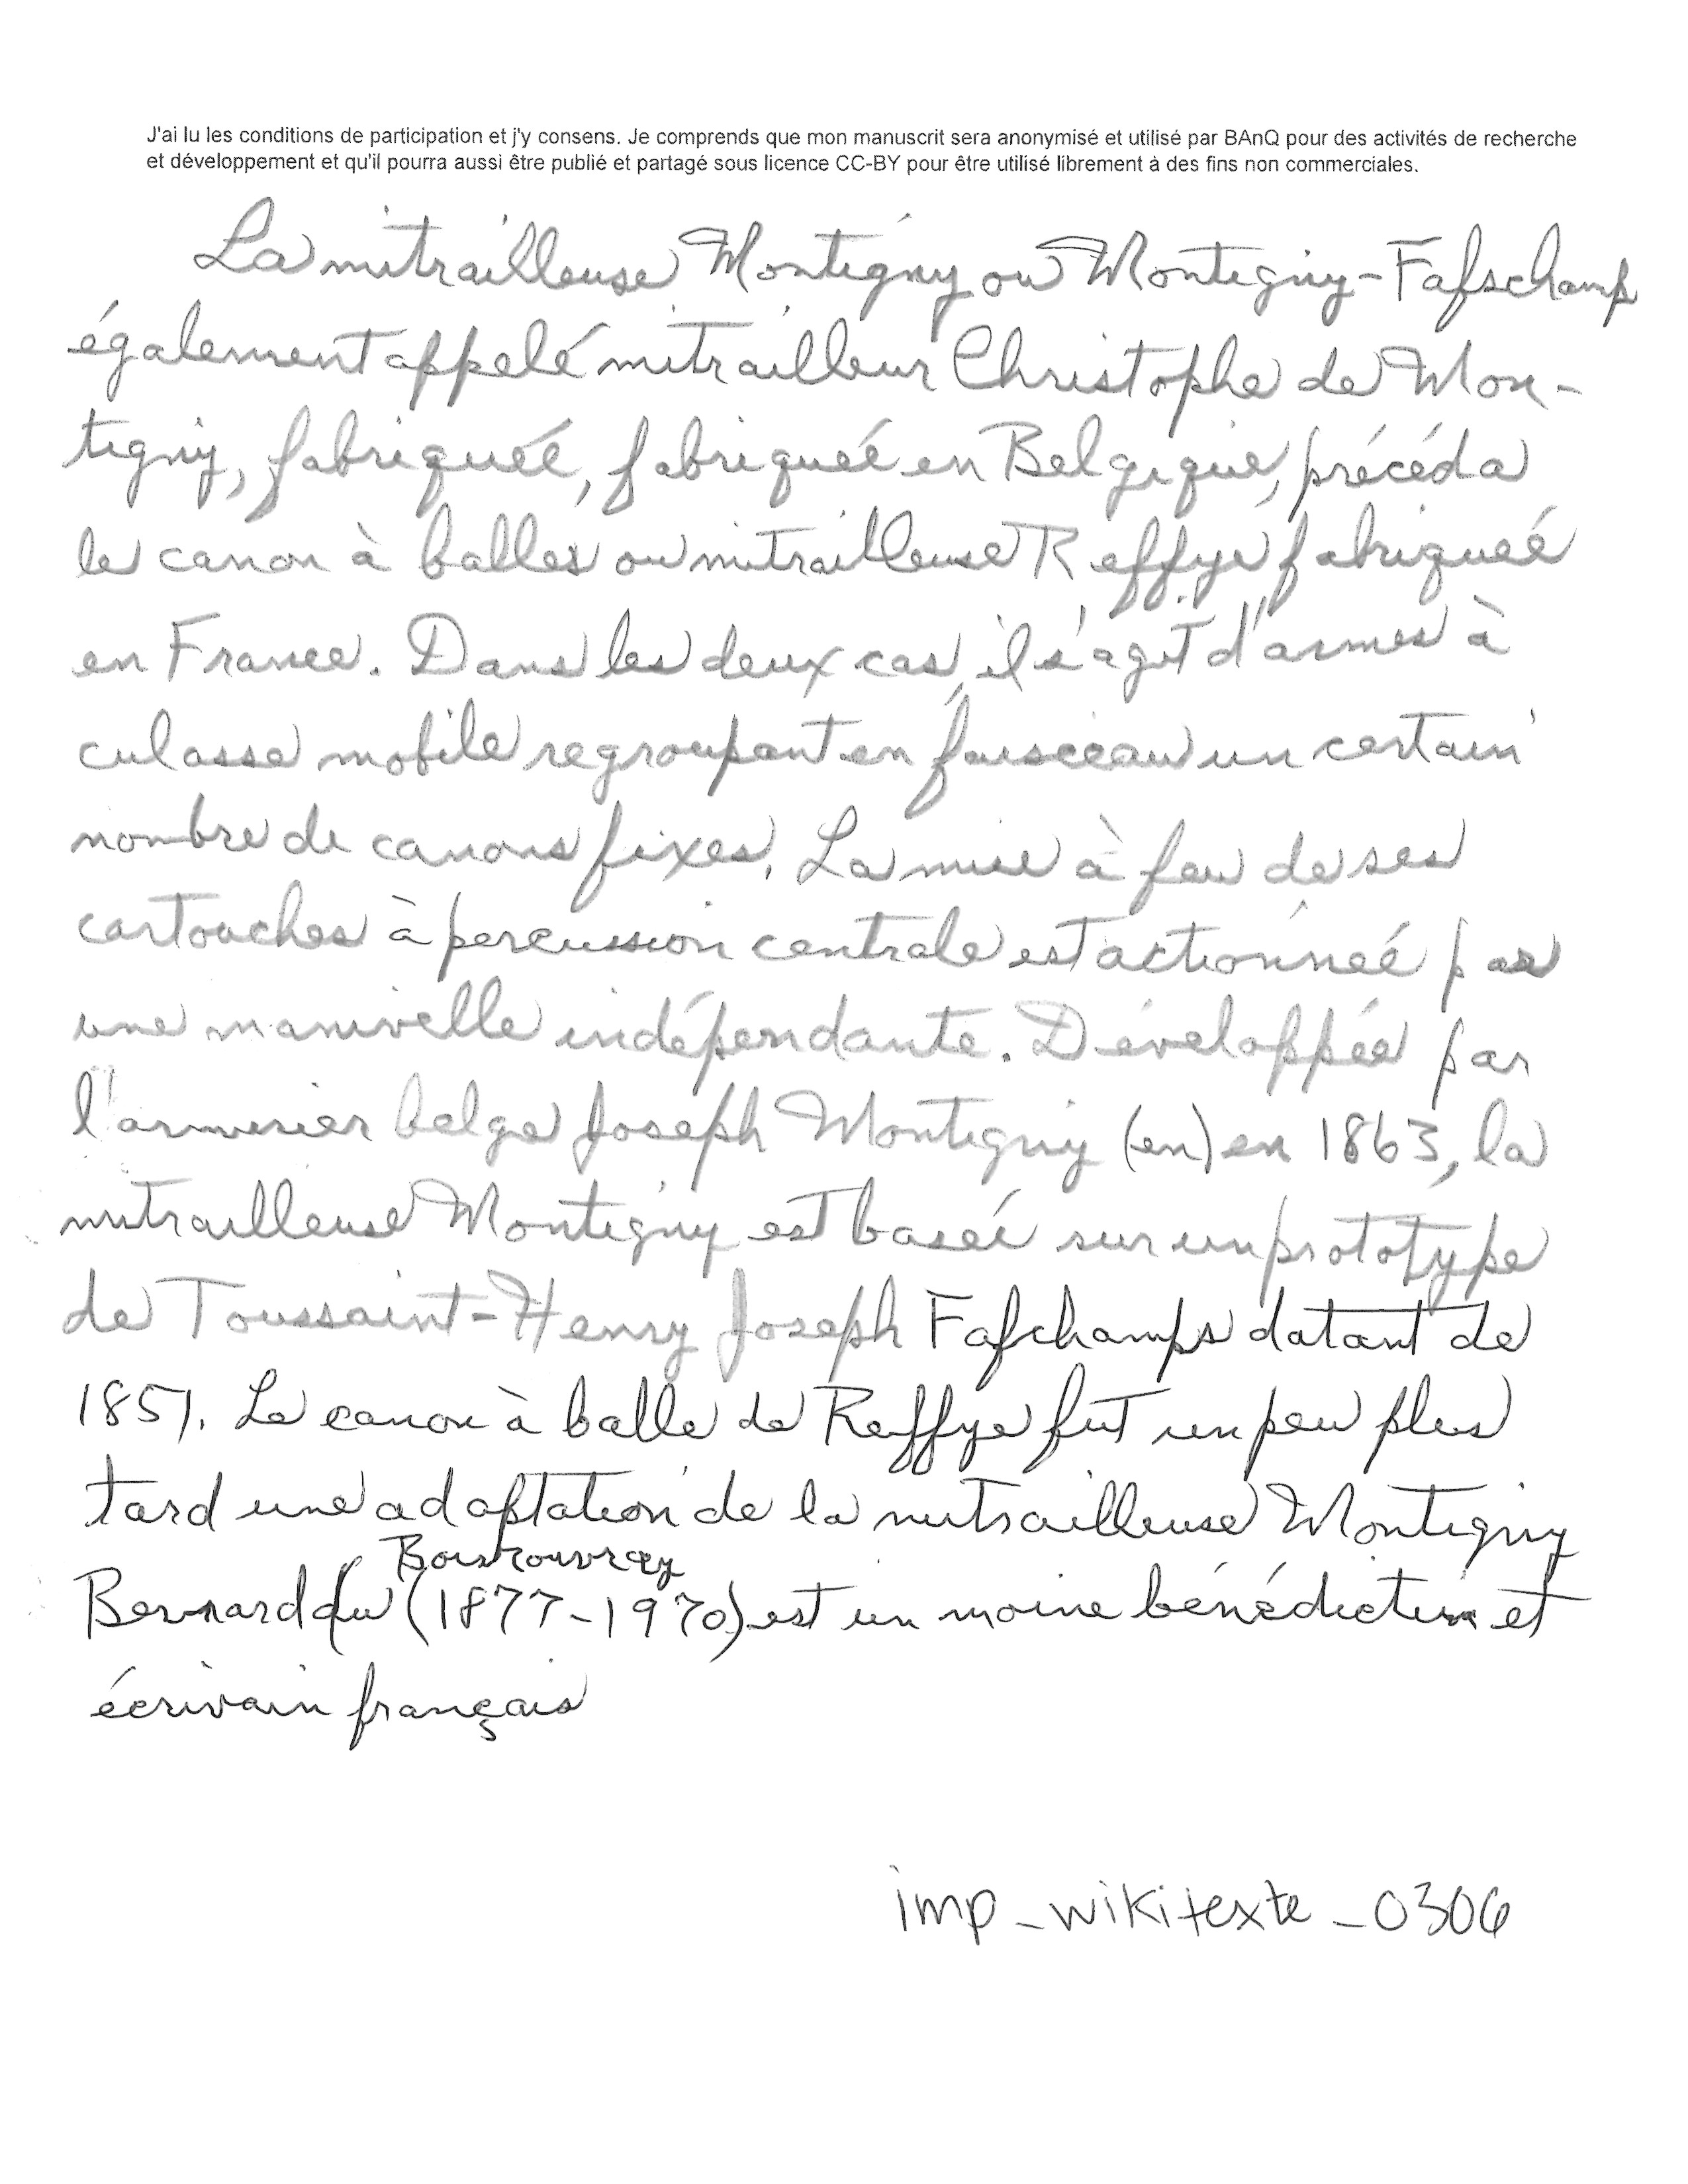 J'ai lu les conditions de participation et j'y consens. Je comprends que mon manuscrit sera anonymisé et utilisé par BAnQ pour des activités de recherche
et développement et qu'il pourra aussi être publié et partagé sous licence CC-BY pour être utilisé librement à des fins non commerciales.
La mitrailleuse Montigny ou Montigny-Fafschamp
également appelé mitrailleur Christophe de Mon-
tigny, fabriquée, fabriquée en Belgique, précéda
le canon à balles ou mitrailleuse Reffye fabriquée
en France. Dans les deux cas, il s'agit d'armes à
culasse mobile regroupant en faisceau un certain
nombre de canons fixes. La mise à feu de ses
cartouches à percussion centrale est actionnée par
une manivelle indépendante. Développée par
l'armurier belge Joseph Montigny (en) en 1863, la
mitrailleuse Montigny est basée sur un prototype
de Toussaint-Henry Joseph Fafchamps datant de
1851. Le canon à balle de Reffye fut un peu plus
tard une adaptation de la mitrailleuse Montigny
Boisrouvray
Bernard du (1877-1970) est un moine bénédictin et
écrivain français
imp_wikitexte_0306